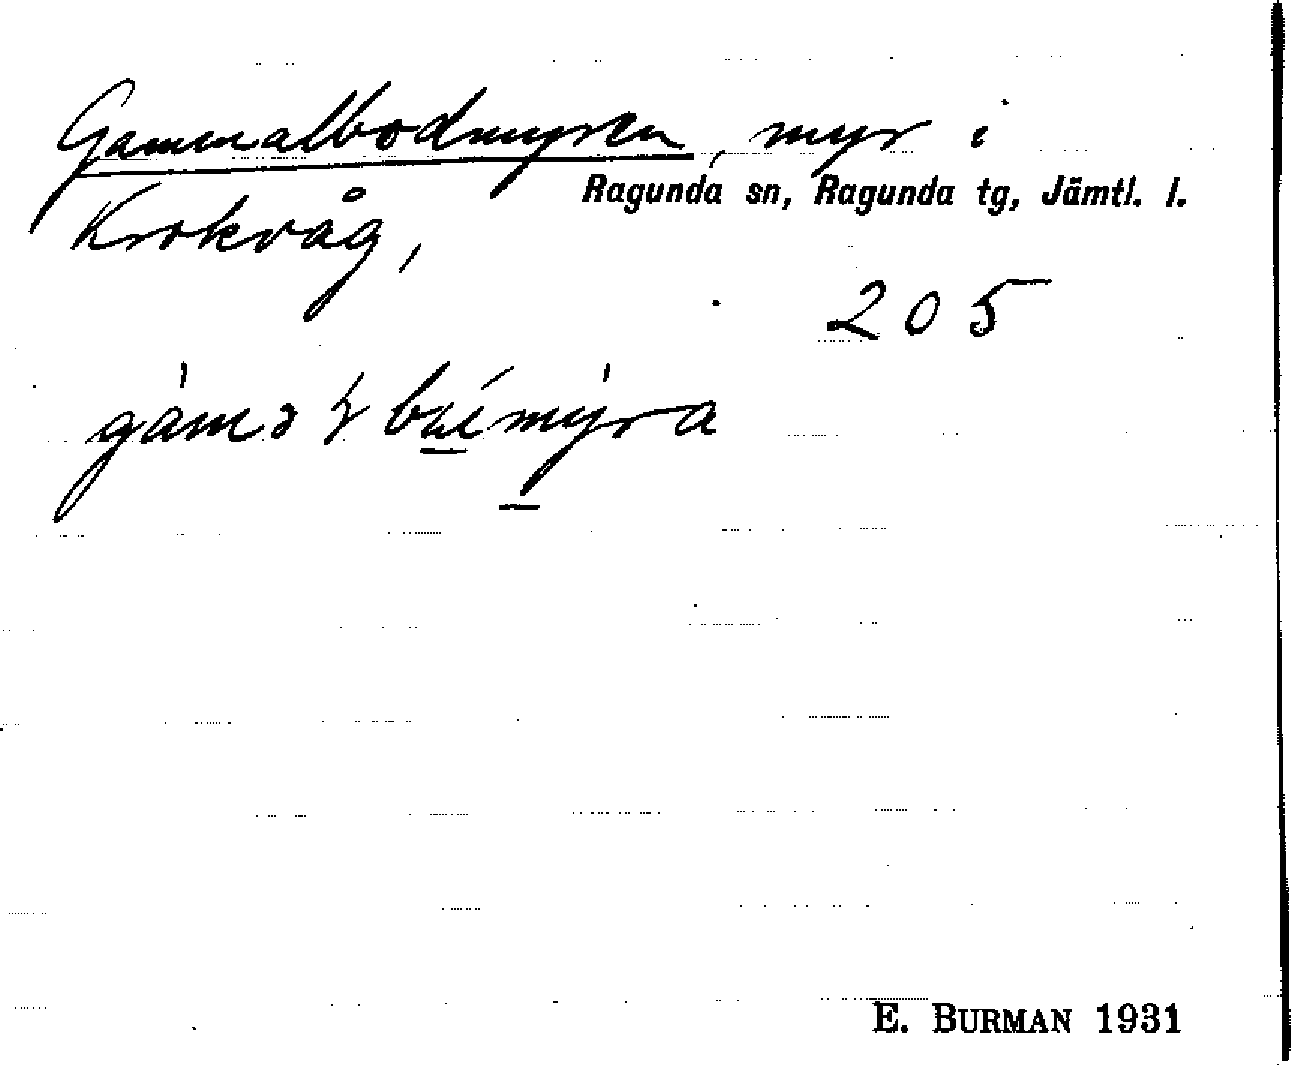 Gammalbodmyren, myr i
Ragunda sn, Ragunda tg, Jämtl. l.
Krokvåg,
205
E. BURMAN 1931